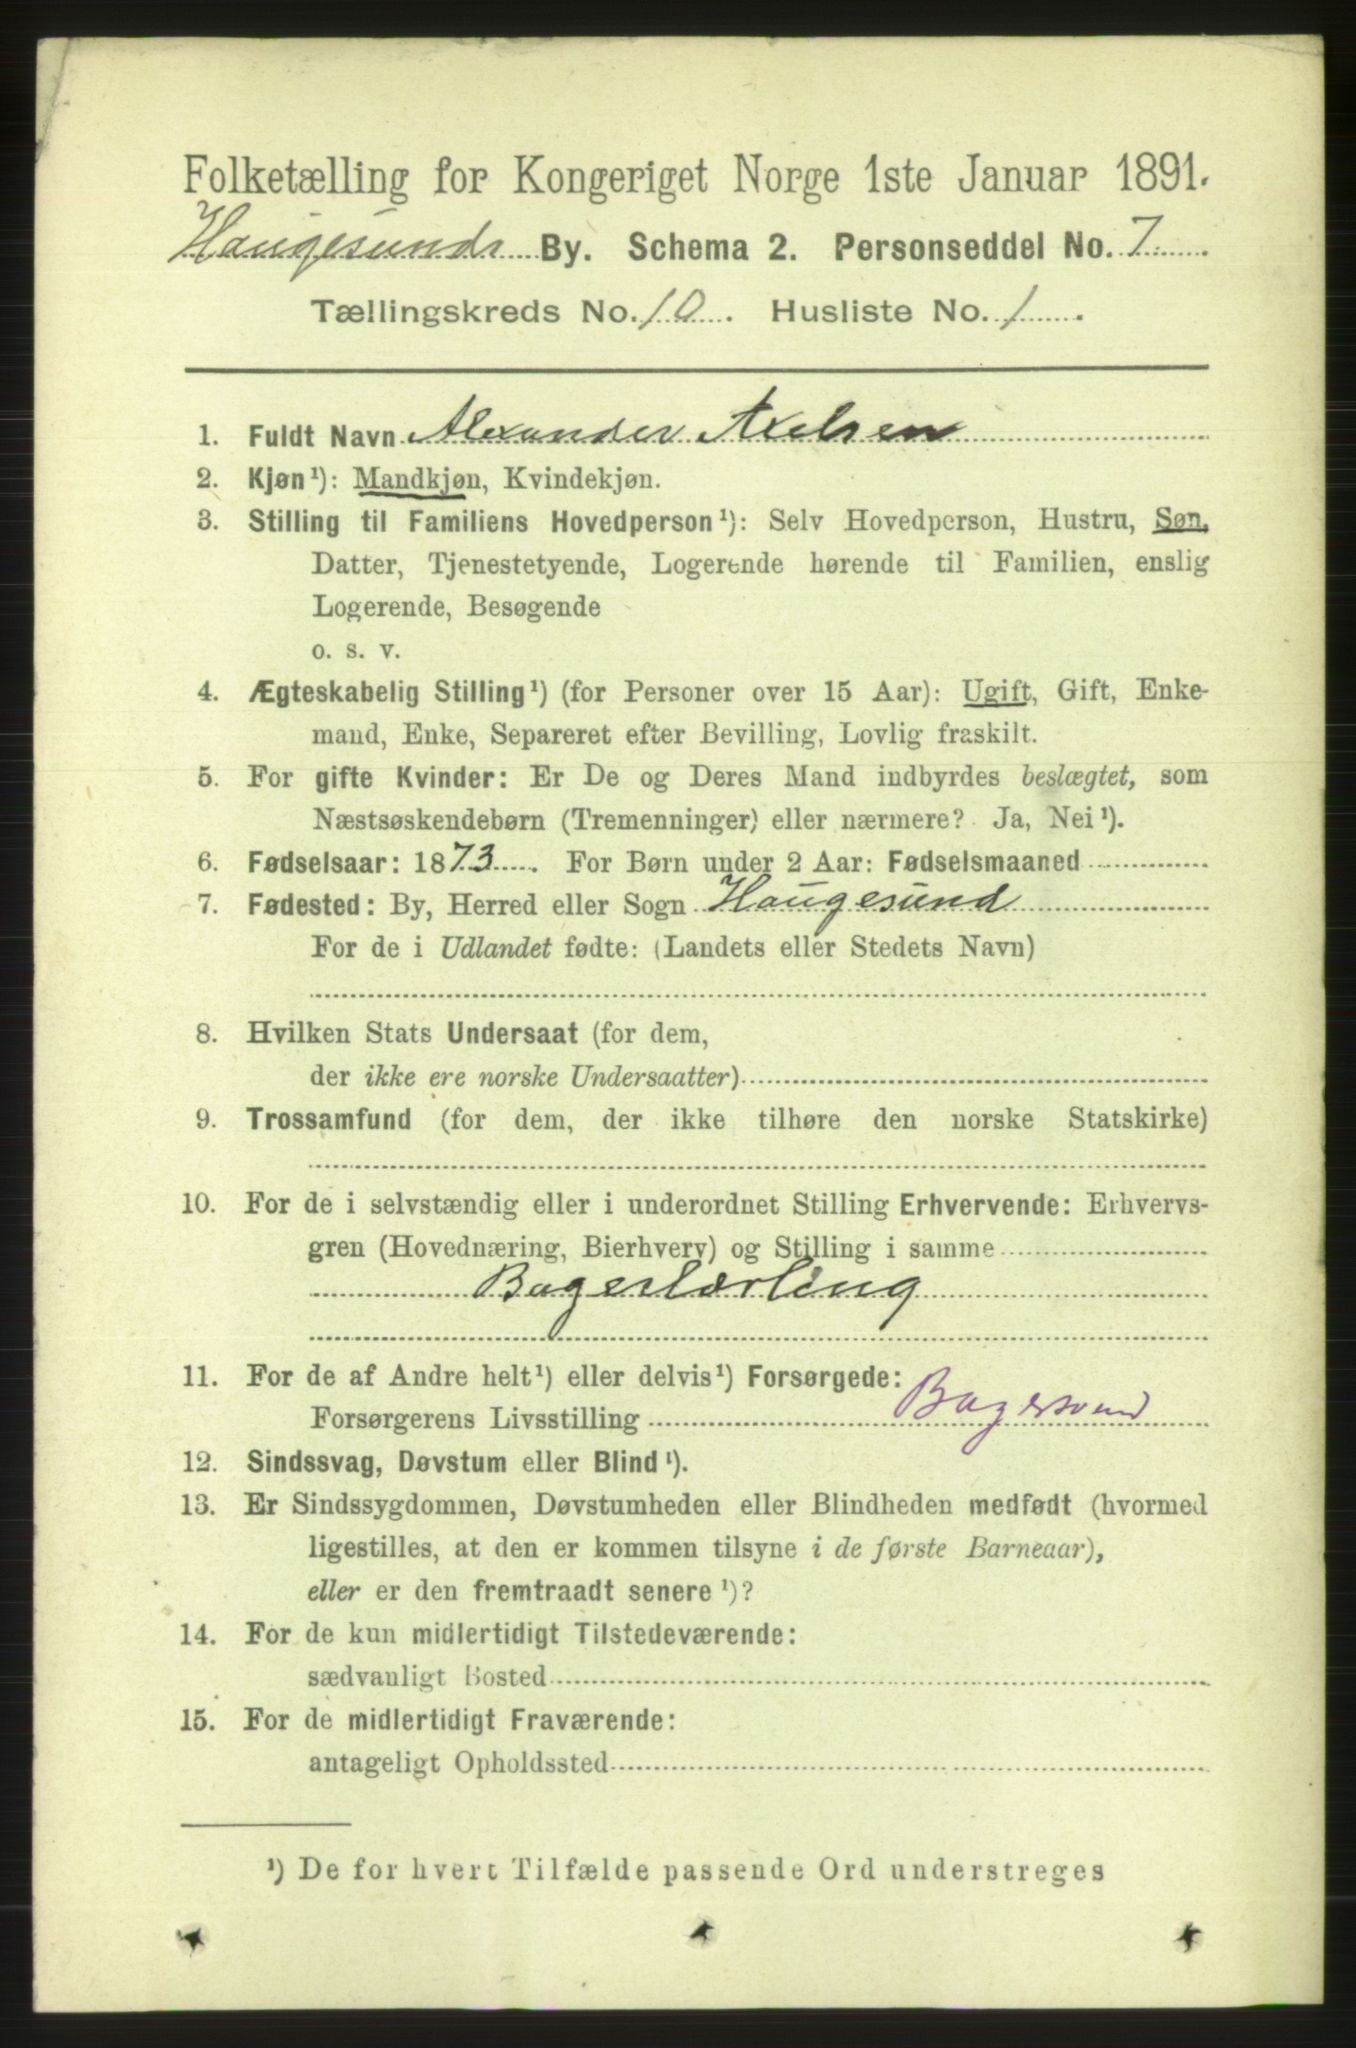 Folketælling for Kongeriget Norge 1ste Januar 1891.
Haugesunds By. Schema 2. Personseddel No. 7
Tællingskreds No. 10. Husliste No. 1.
1. Fuldt Navn Alexander Axelsen
2. Kjøn¹): Mandkjøn, Kvindekjøn.
3. Stilling til Familiens Hovedperson¹): Selv Hovedperson, Hustru, Søn,
Datter, Tjenestetyende, Logerende hørende til Familien, enslig
Logerende, Besøgende
o. s. v.
4. Ægteskabelig Stilling¹) (for Personer over 15 Aar): Ugift, Gift, Enke-
mand, Enke, Separeret efter Bevilling, Lovlig fraskilt.
5. For gifte Kvinder: Er De og Deres Mand indbyrdes beslægtet, som
Næstsøskendebørn (Tremenninger) eller nærmere? Ja, Nei¹).
6. Fødselsaar: 1873. For Børn under 2 Aar: Fødselsmaaned
7. Fødested: By, Herred eller Sogn Haugesund
For de i Udlandet fødte: (Landets eller Stedets Navn)
8. Hvilken Stats Undersaat (for dem,
der ikke ere norske Undersaatter)
9. Trossamfund (for dem, der ikke tilhøre den norske Statskirke)
10. For de i selvstændig eller i underordnet Stilling Erhvervende: Erhvervs-
gren (Hovednæring, Bierhverv) og Stilling i samme
Bagerlærling
11. For de af Andre helt¹) eller delvis¹) Forsørgede:
Forsørgerens Livsstilling Bagersvend
12. Sindssvag, Døvstum eller Blind¹).
13. Er Sindssygdommen, Døvstumheden eller Blindheden medfødt (hvormed
ligestilles, at den er kommen tilsyne i de første Barneaar),
eller er den fremtraadt senere¹)?
14. For de kun midlertidigt Tilstedeværende:
sædvanligt Bosted
15. For de midlertidigt Fraværende:
antageligt Opholdssted
¹) De for hvert Tilfælde passende Ord understreges